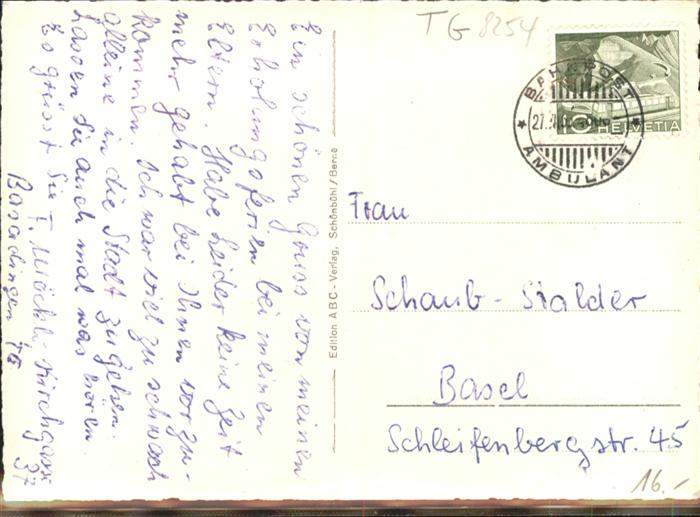 Ein schönen Gruss von meinen
Erholungsferien bei meinen
Eltern. Habe leider keine Zeit
mehr gehabt bei Ihnen vorzu-
kommen. Ich war viel zu schwach
alleine in die Stadt zu gehen.
Lassen Sie auch mal was hören.
Es grüsst Sie T. Möckli-Kirchgasse
37
Basadingen TG
Edition ABC - Verlag, Schönbühl / Berne
TG 8254
BAHNPOST
AMBULANT
10 HELVETIA
Frau
Schaub-Stalder
Basel
Schleifenbergstr. 45
16.-